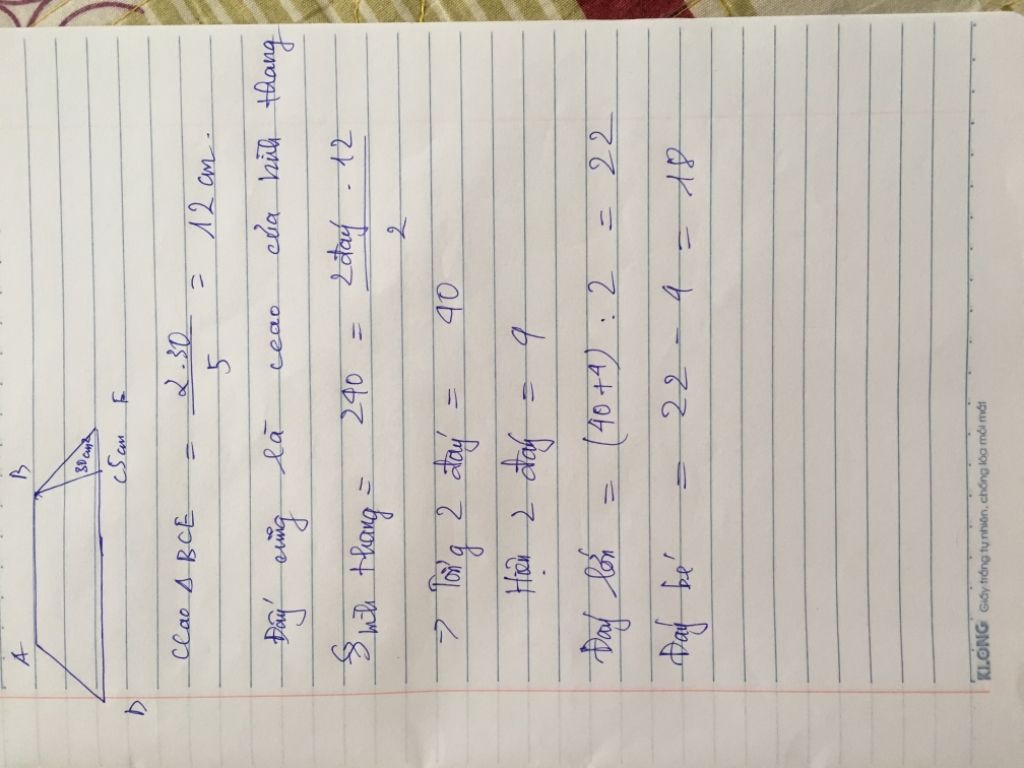 A B
30cm²
D C 5cm E
Ccao Δ BCE = 2.30 / 5 = 12 cm.
Đáy cũng là ccao của hình thang
S hình thang = 240 = 2 đáy . 12 / 2
→ Tổng 2 đáy = 40
Hiệu 2 đáy = 4
Đáy lớn = (40+4) : 2 = 22
Đáy bé = 22 - 4 = 18
KLONG Giấy trắng tự nhiên, chống lóa mỏi mắt